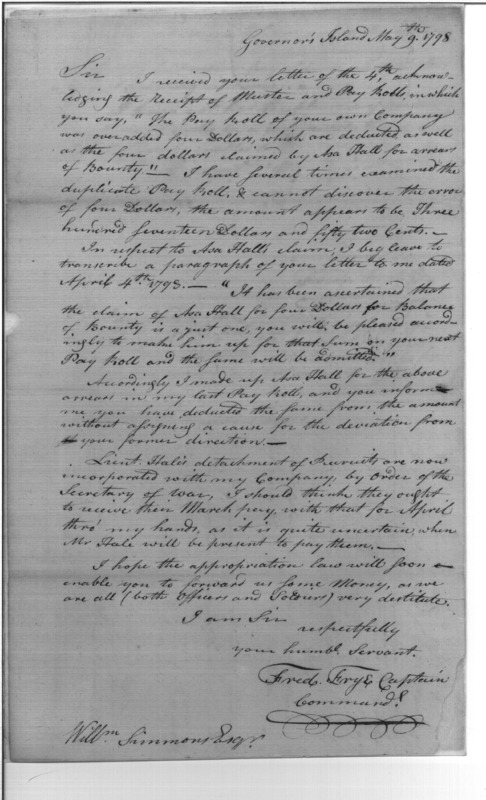 Governor's Island May 9th. 1798
Sir I received your letter of the 4th. acknow-
ledging the receipt of Muster and Pay Rolls, in which
you say, "The Pay Roll of your own Company
was overadded four Dollars, which are deducted as well
as the four dollars claimed by Asa Hall for arrears
of Bounty" — I have several times examined the
duplicate Pay Roll, & cannot discover the error
of four Dollars, the amount appears to be Three
hundred seventeen Dollars and fifty two Cents. —
In respect to Asa Hall's claim, I beg leave to
transcribe a paragraph of your letter to me dated
April 4th. 1798. — "It has been ascertained that
the claim of Asa Hall for four Dollars for Balance
of Bounty is a just one, you will, be pleased accord-
ingly to make him up for that Sum on your next
Pay Roll and the same will be admitted."
Accordingly I made up Asa Hall for the above
arrears in my last Pay Roll, and you inform
me you have deducted the same from the amount
without assigning a cause for the deviation from
your former direction. —
Lieut. Hale's detachment of Recruits are now
incorporated with my Company, by Order of the
Secretary of War, I should think they ought
to receive their March pay, with that for April
thro' my hands, as it is quite uncertain, when
Mr Hale will be present to pay them. —
I hope the appropriation law will soon
enable you to forward us some Money, as we
are all (both Officers and Soldiers) very destitute.
I am Sir
respectfully
your humbl. Servant.
Fredk. Frye Captain
Command.g
Willm. Simmons Esqr.